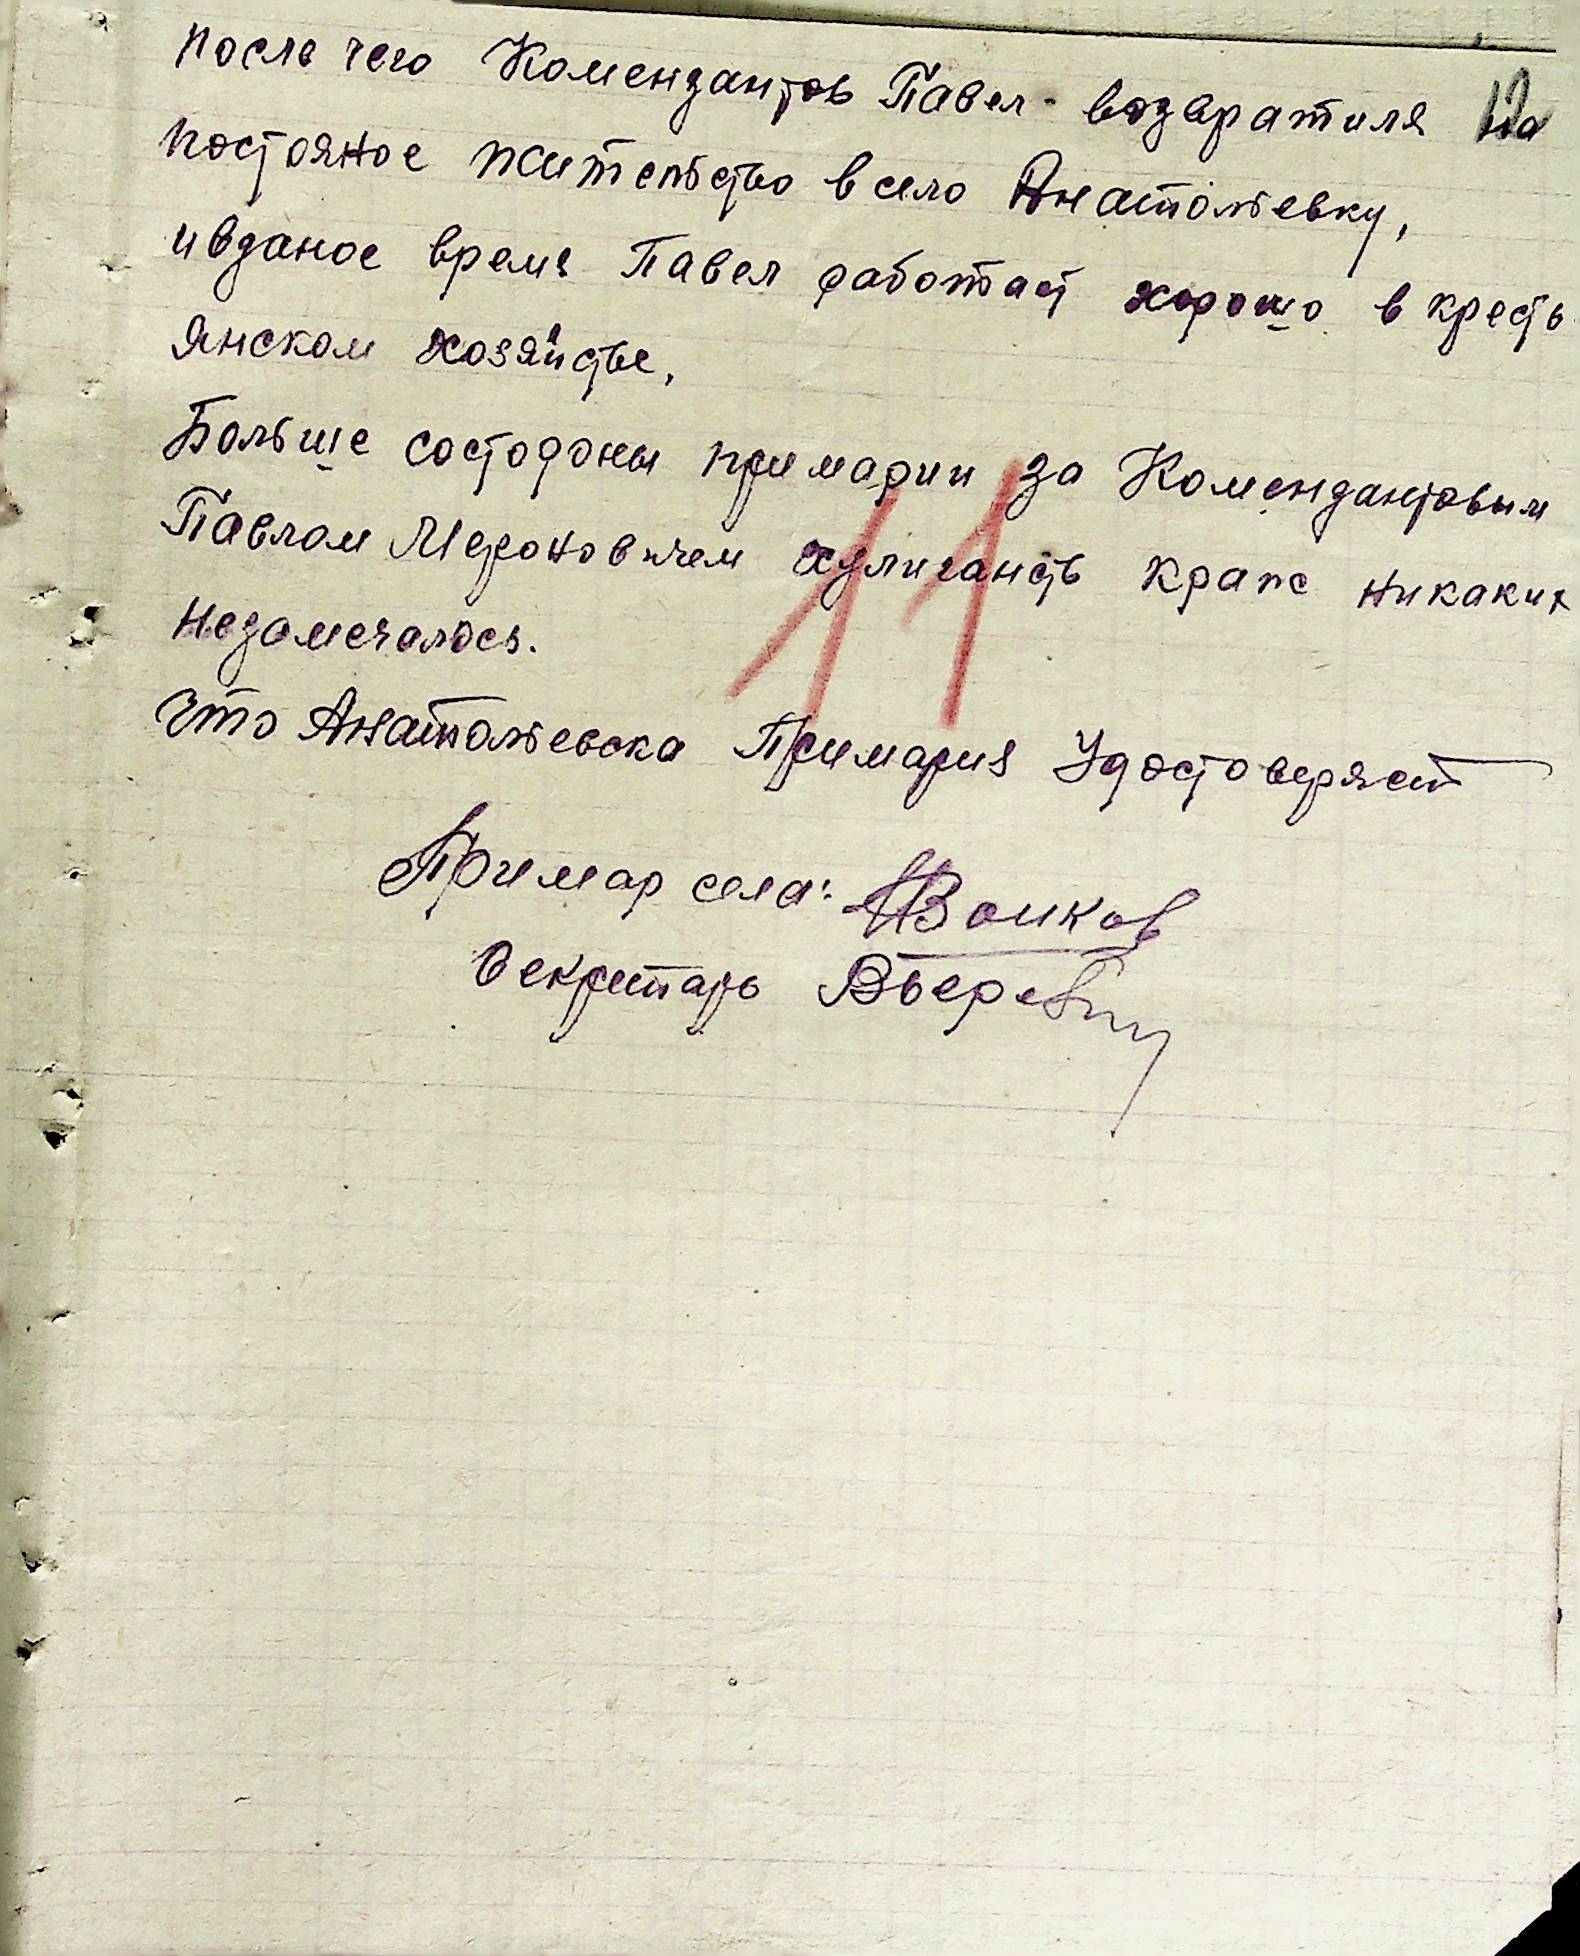 после чего Комендантов Павел возвратился на
постояное жительство в село Анатольевку,
ивданое время Павел работает хорошо в кресть
янском хозяйстве,
Больше состороны примарии за Комендантовым
Павлом Мероновичем хулиганств краж никаких
незамечалось.
Что Анатольевска Примария Удостоверяет
Примар села: Волков
Секретарь
11